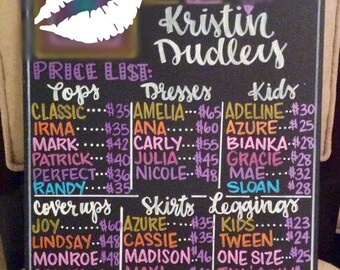 Kristin
Dudley
PRICE LIST:
Tops
CLASTIC....$35
IRMA....$35
MARK....$42
PATRICK...$40
PERFECT...$36
RANDY....$35
Dresses
AMELIA...$65
ANA....$60
CARLY....$55
JULIA....$45
NICOLE...$48
Kids
ADELINE..$30
AZURE...$25
BIANKA..$28
GRACIE..$28
MAE.....$32
SLOAN..$28
Coverups
JOY.....$60
LINDSAY..$48
MONROE..$48
Skirts
AZURE...$35
CASSIE...$35
MADISON..$46
Leggings
KIDS....$23
TWEEN...$24
ONE SIZE..$25